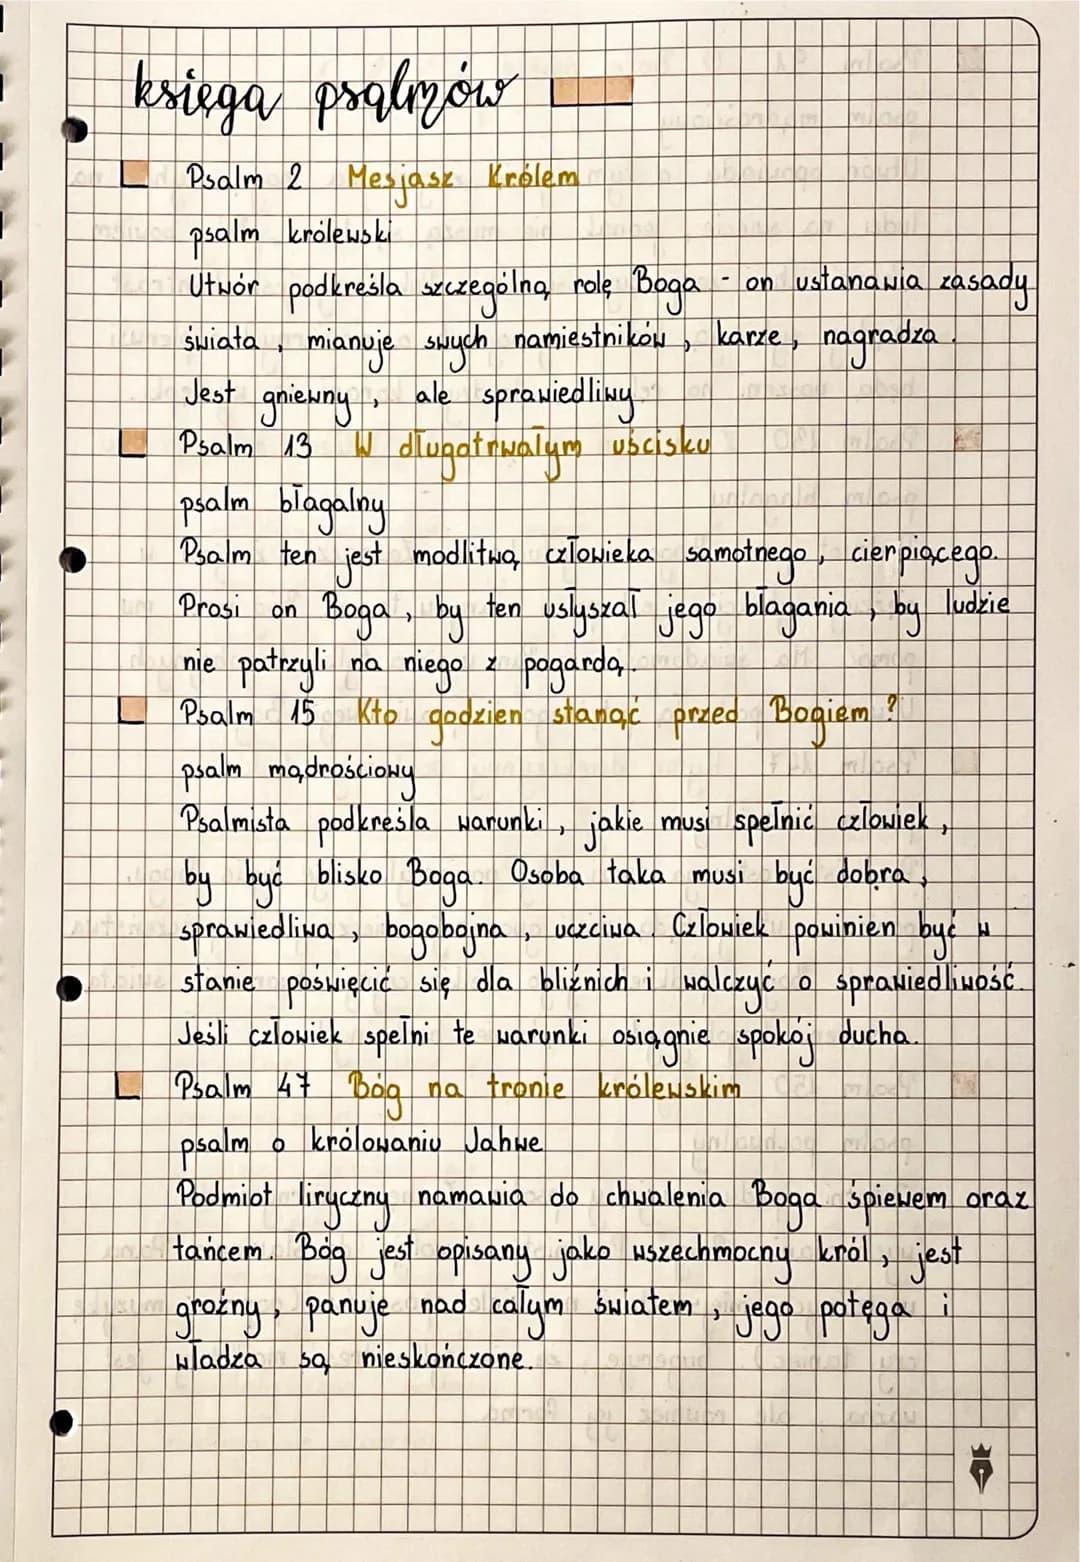 księga psalmów
Psalm 2 Mesjasz Królem
psalm królewski
Utwór podkreśla szczególną rolę Boga - on ustanawia zasady
świata, mianuje swych namiestników, karze, nagradza.
Jest gniewny, ale sprawiedliwy.
Psalm 13 W długotrwałym uścisku
psalm błagalny
Psalm ten jest modlitwą człowieka samotnego, cierpiącego.
Prosi on Boga, by ten usłyszał jego błagania, by ludzie
nie patrzyli na niego z pogardą.
Psalm 15 Kto godzien stanąć przed Bogiem?
psalm mądrościowy
Psalmista podkreśla warunki, jakie musi spełnić człowiek,
by być blisko Boga. Osoba taka musi być dobra,
sprawiedliwa, bogobojna, uczciwa. Człowiek powinien być w
stanie poświęcić się dla bliźnich i walczyć o sprawiedliwość.
Jeśli człowiek spełni te warunki osiągnie spokój ducha.
Psalm 47 Bóg na tronie królewskim
psalm o królowaniu Jahwe
Podmiot liryczny namawia do chwalenia Boga śpiewem oraz
tańcem. Bóg jest opisany jako wszechmocny król, jest
groźny, panuje nad całym światem, jego potęga i
władza są nieskończone.